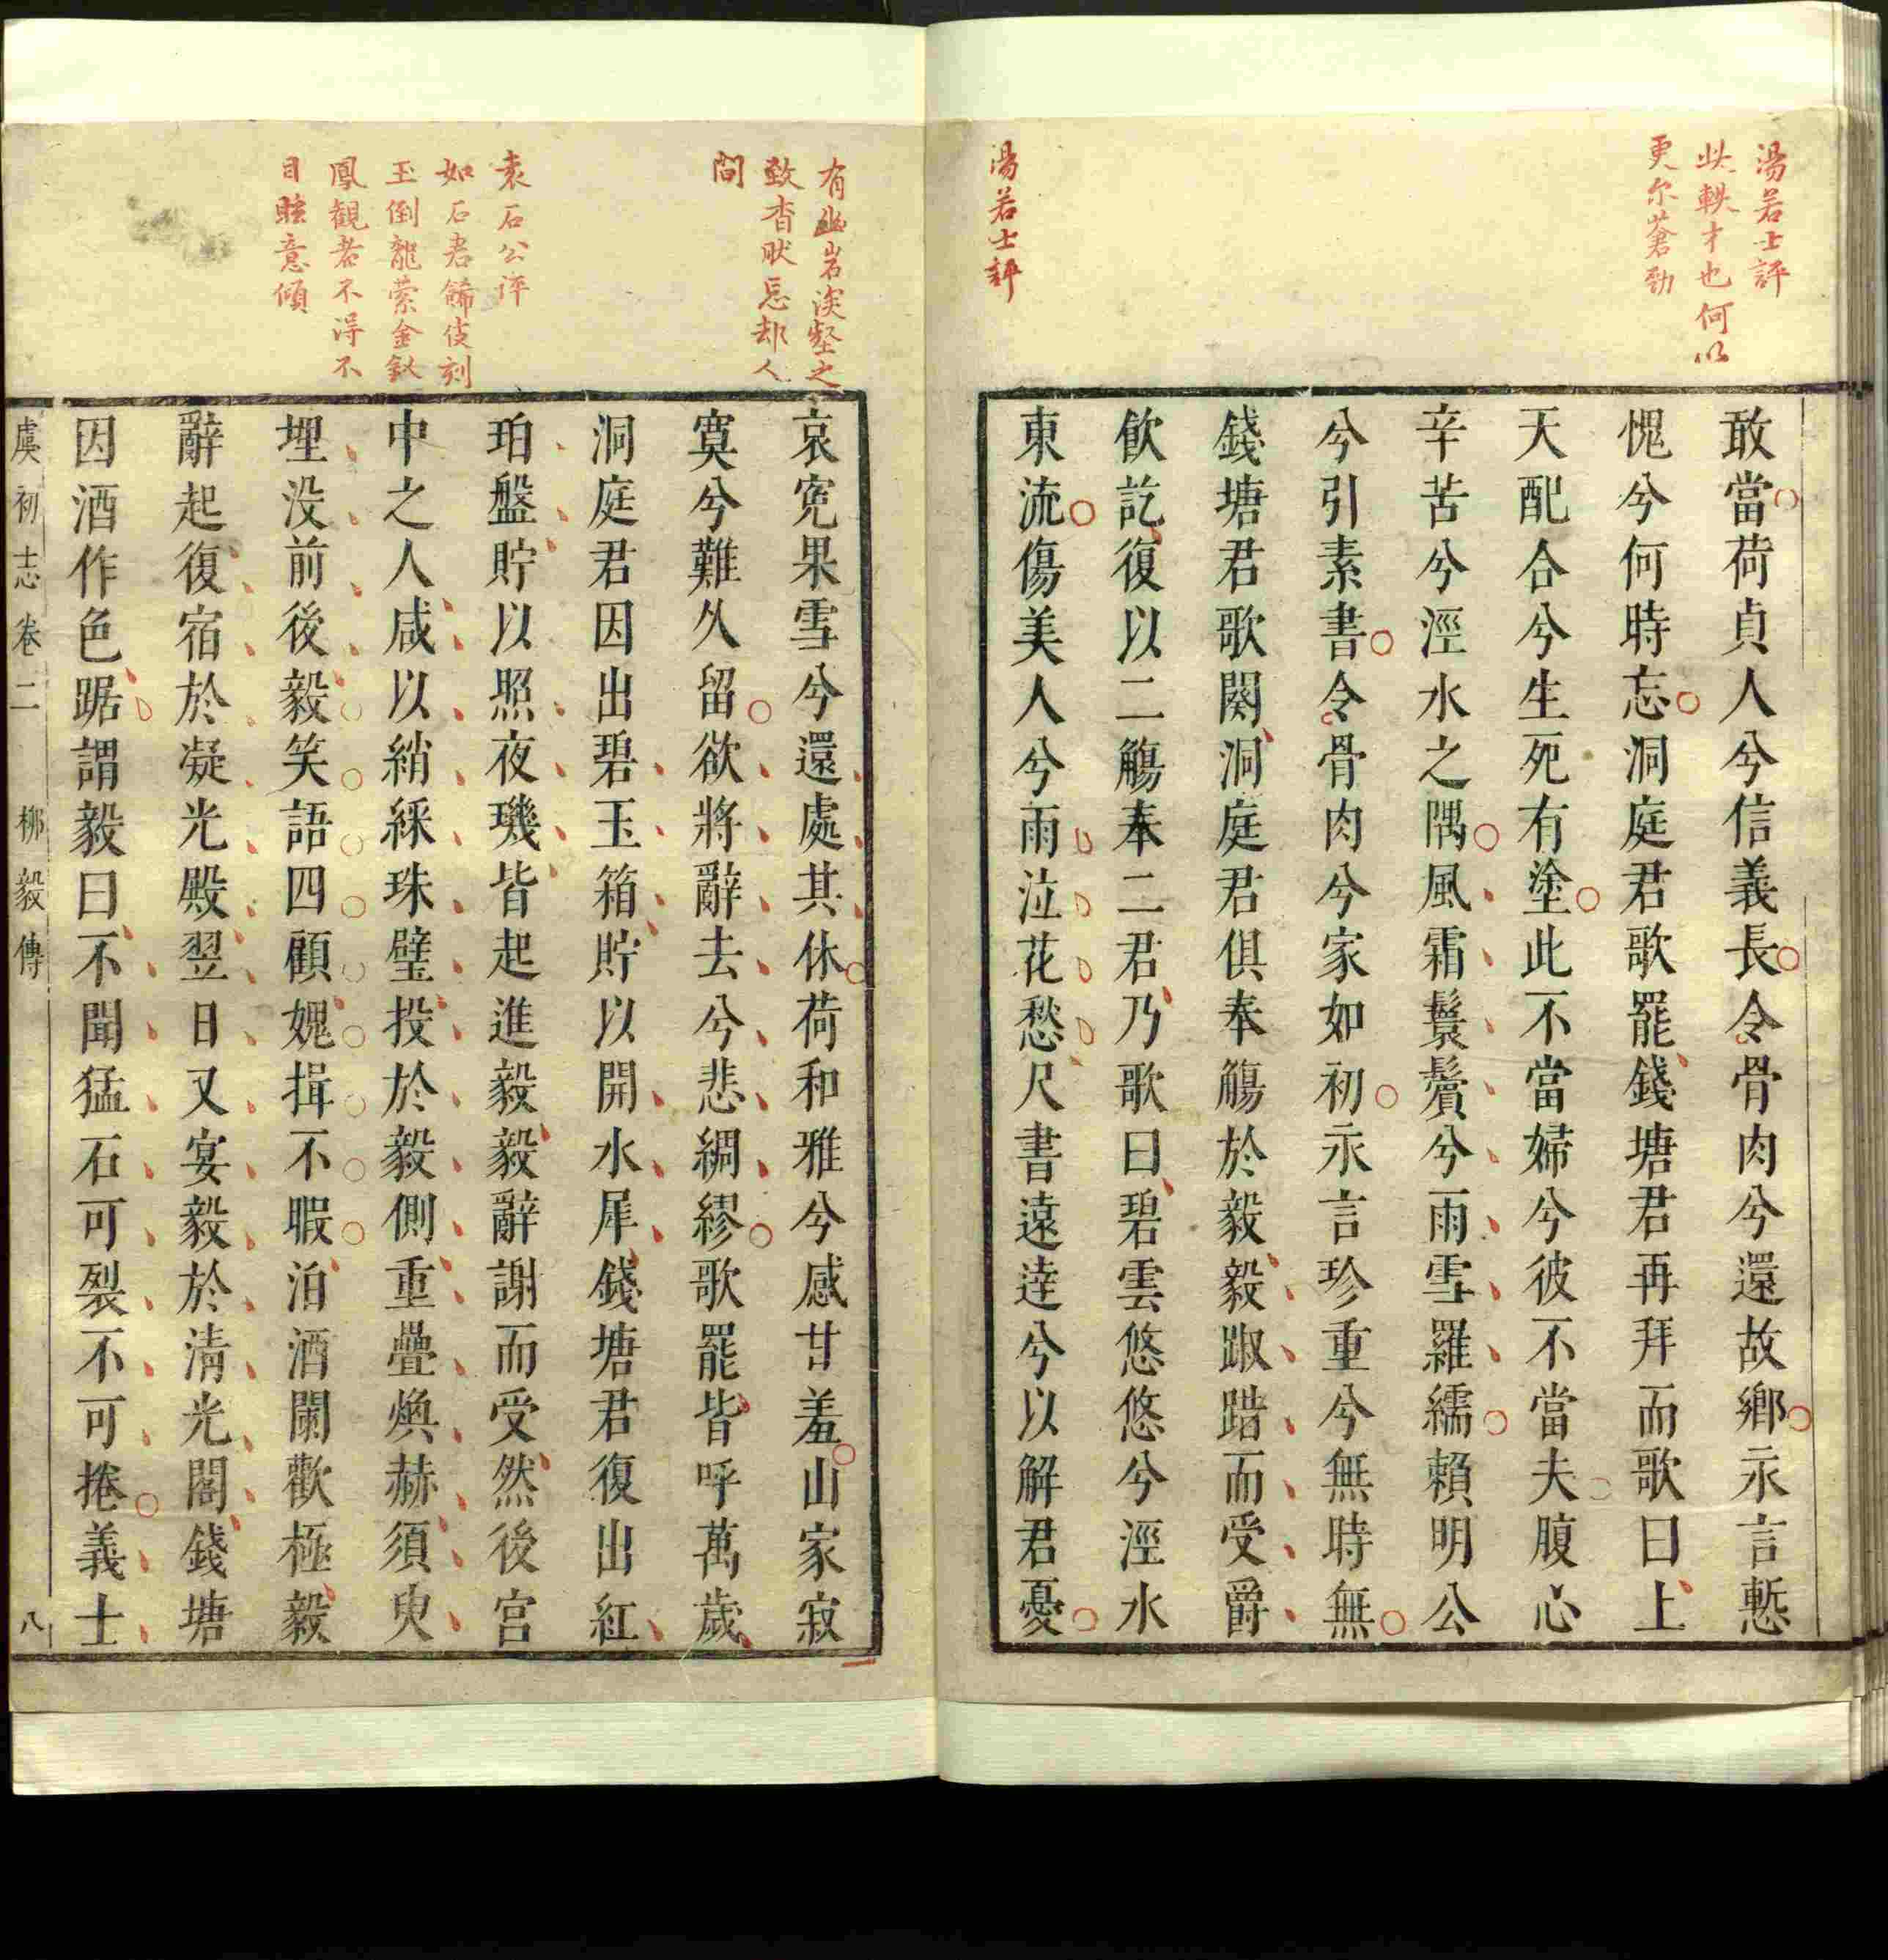 湯若士評
此軼才也何以
更尔蒼勁
湯若士評
敢當荷貞人兮信義長令骨肉兮還故鄉永言慙
愧兮何時忘洞庭君歌罷錢塘君再拜而歌曰上
天配合兮生死有塗此不當婦兮彼不當夫腹心
辛苦兮涇水之隅風霜鬟鬢兮雨雪羅繻賴明公
兮引素書令骨肉兮家如初永言珍重兮無時無
錢塘君歌闋洞庭君俱奉觴於毅毅踧踖而受爵
飲訖復以二觴奉二君乃歌曰碧雲悠悠兮涇水
東流傷美人兮雨泣花愁尺書遠達兮以解君憂
有幽岩深壑之
致杳肰忘却人
間
袁石公評
如石耆餙伎刻
玉倒龍縈金釵
鳳觀者不得不
目眩意傾
哀寃果雪兮還處其休荷和雅兮感甘羞山家寂
寞兮難久留欲將辭去兮悲綢繆歌罷皆呼萬歲
洞庭君因出碧玉箱貯以開水犀錢塘君復出紅
珀盤貯以照夜璣皆起進毅毅辭謝而受然後宮
中之人咸以綃綵珠璧投於毅側重疊煥赫須臾
埋没前後毅笑語四顧媿揖不暇洎酒闌歡極毅
辭起復宿於凝光殿翌日又宴毅於清光閣錢塘
因酒作色踞謂毅曰不聞猛石可裂不可捲義士
虞初志卷二 柳毅傳 八